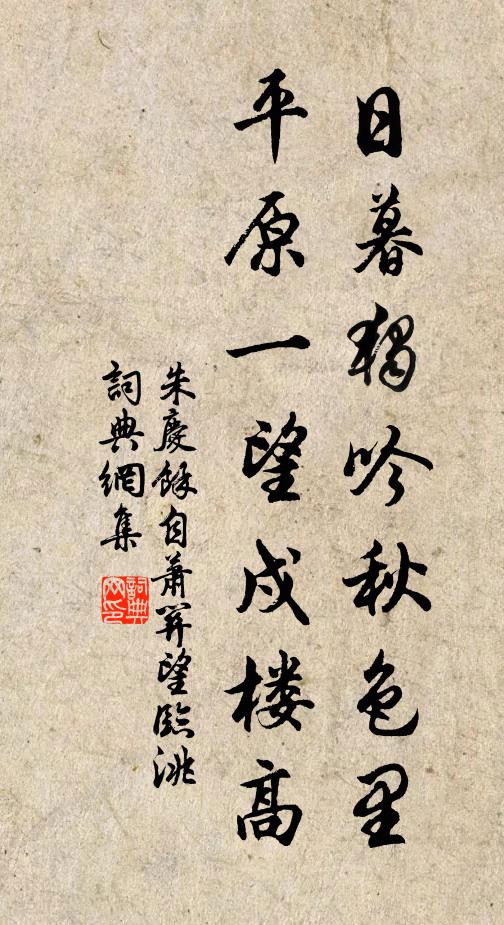 日暮独吟秋色里
平原一望戍楼高
朱慶餘自蕭關望臨洮
詞典網集
詞典網印